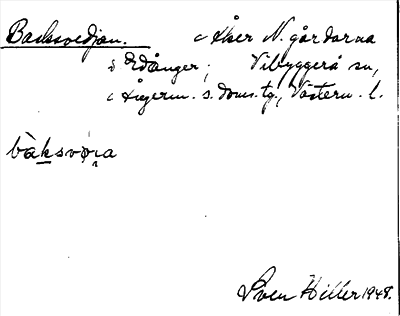 Backsvedjan. c Åker N. gårdarna
s Edånger; Vibyggerå sn,
c Ångerm. s. doms. tg, Västern. l.
bàksvø̨ṇa
Sven Hiller 1948.